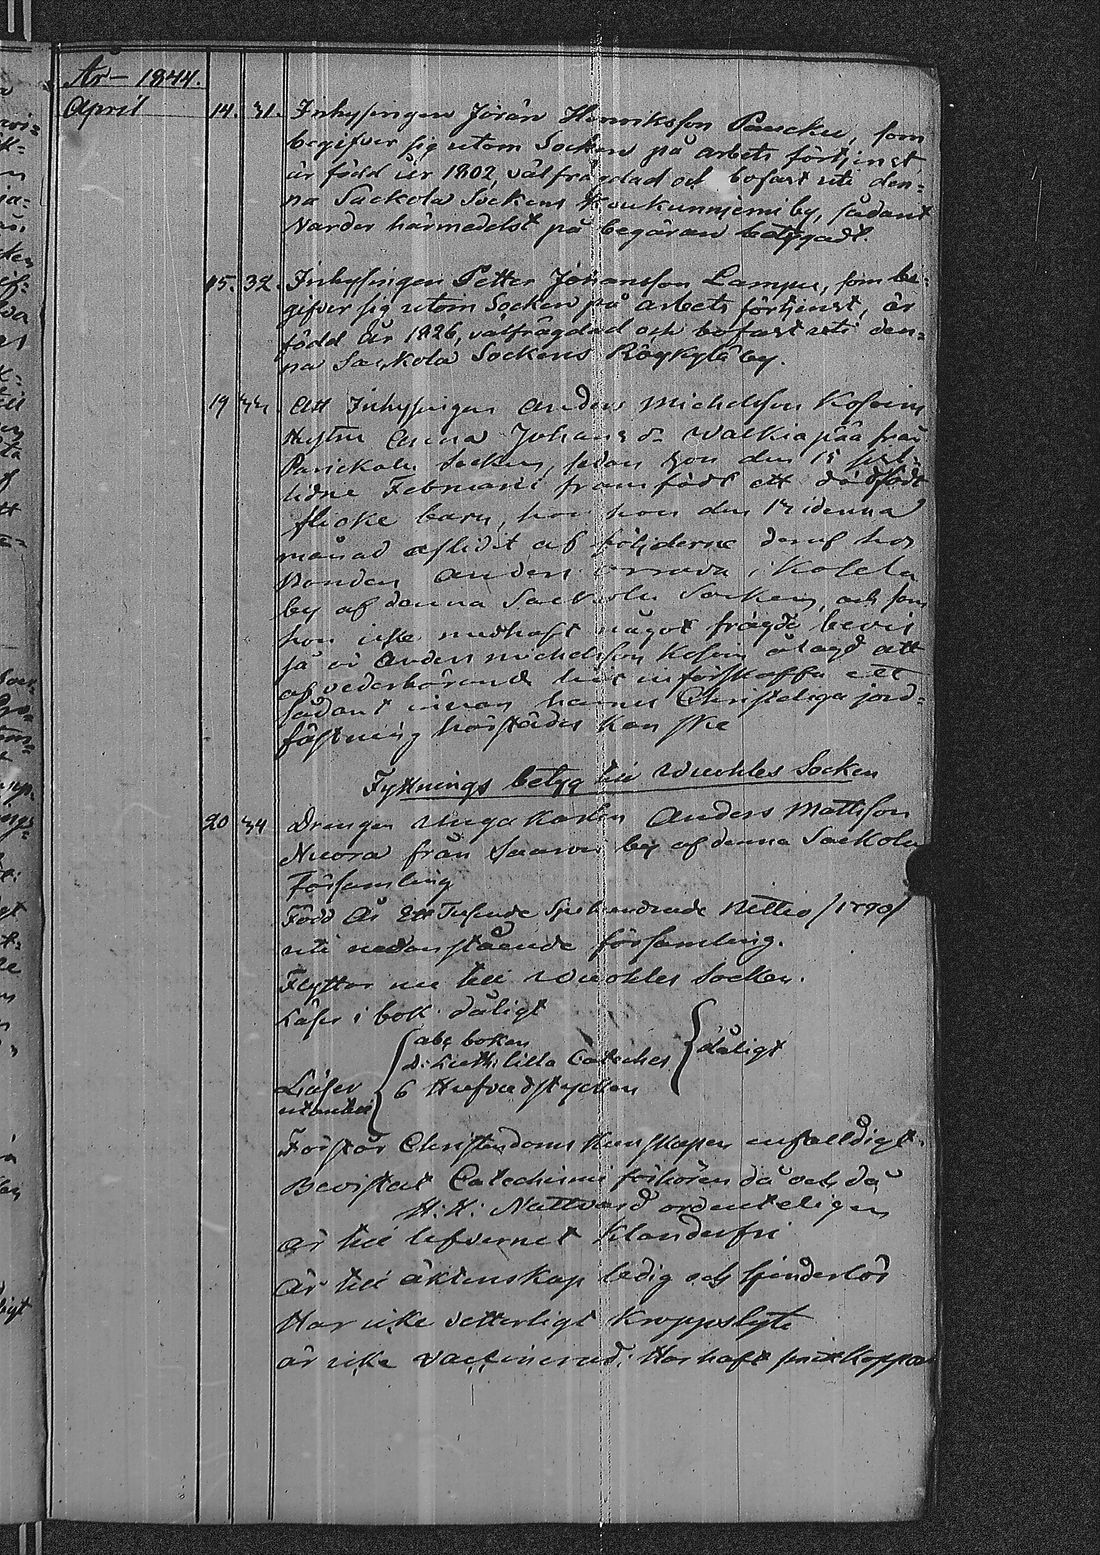 År – 1844.
April 14. 31. Inhysingen Jöran Henriksson Paucku, som
begifver sig utom Socken på arbets förtjenst,
är född år 1802, välfrägdad och bofast uti den=
na Sackola Sockens by, sådant
varder härmedelst på begäran betygadt.
15. 32. Inhysingen Petter Johansson Lampu, som be=
gifver sig utom Socken på arbets förtjenst, är
född År 1826, välfrägdad och bofast uti den=
na Sackola Sockens Röykylä by.
19 33. Att Inhysingen Anders Michelsson Kosoins
Hustru Anna Johans dr Walkiapää från
Parickala Socken, sedan hon den 15 sist=
lidne Februarii framfödt ett dödfödt
flicke barn, har hon den 17 i denna
månad aflidit af följderne deraf hos
Bonden Anders i
by af denna Sackola Socken, och som
hon icke medhaft något frägde bevis
så är Anders Michelsson ålagd att
af vederbörande införskaffa ett
sådant innan hennes Christeliga jord=
fästning härstädes kan ske
Flyttnings betyg till Wuokles Socken
20 34 Drengen Unga Karlen Anders Mattsson
Nuora från by af denna Sackola
Församling
Född År Ett Tusende Sju hundrade Nittio /1790/
uti nedanstående församling.
Flyttar nu till Wuokles Socken.
Läser i bok dåligt
abc boken
D: Luth: lilla Cateches dåligt
Läser 6 Hufvudstycken
utantill
Förstår Christendoms kunskapen enfalldigt.
Bevistat Catechismi förhören då och då
H. H. Nattvard ordenteligen
är till lefvernet klanderfri
Är till äktenskap ledig och hinderlös
Har icke vetterligt kroppslyte
är icke vaccinerad. Har haft koppor